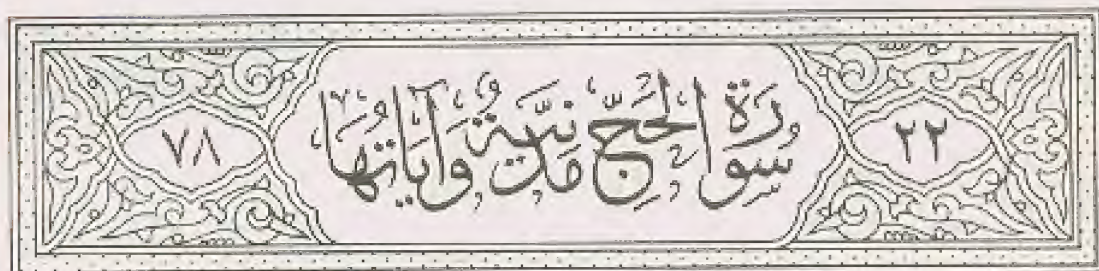 ٢٢ سُورَةُ الحَجِّ مَدَنِيَّةٌ وَآيَاتُهَا ٧٨